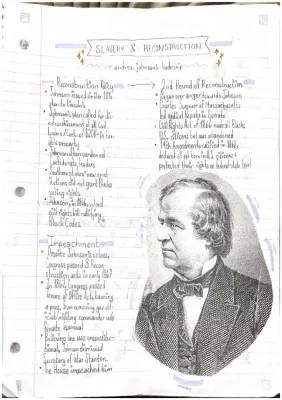 SLAVERY & RECONSTRUCTION
andrew johnson's leadership
Reconstruction Policy
• Johnson issued similar 10%
plan to Lincoln's
• Johnson's plan called for dis-
enfranchisement of all
w/ $20K+ in tax-
able property
• Johnson often pardoned
confederate leaders
• Southern states' new const-
itutions did not grant blacks
voting rights
• Johnson, in 1866, vetoed
civil rights bill nullifying
Black Codes
2nd Round of Reconstruction
• Began over anger towards Johnson
• Charles Sumner of Massachusetts
led radical Repub's in Congress
• Civil Rights Act of 1866 made all Blacks
U.S. citizens but was
• 14th Amendment ratified in 1868,
declared all ppl born in U.S. citizens &
protected their rights on federal/state level
Impeachment
• Despite Johnson's vetoes,
Congress passed 3 Recon-
struction acts in early 1867
• In 1867, Congress passed
tenure of office Acts, banning
a pres. from removing gov. off-
icial/military commander w/o
Senate approval
• Believing law was unconstitu-
tional, Johnson dismissed
Secretary of War Stanton
• The House impeached him